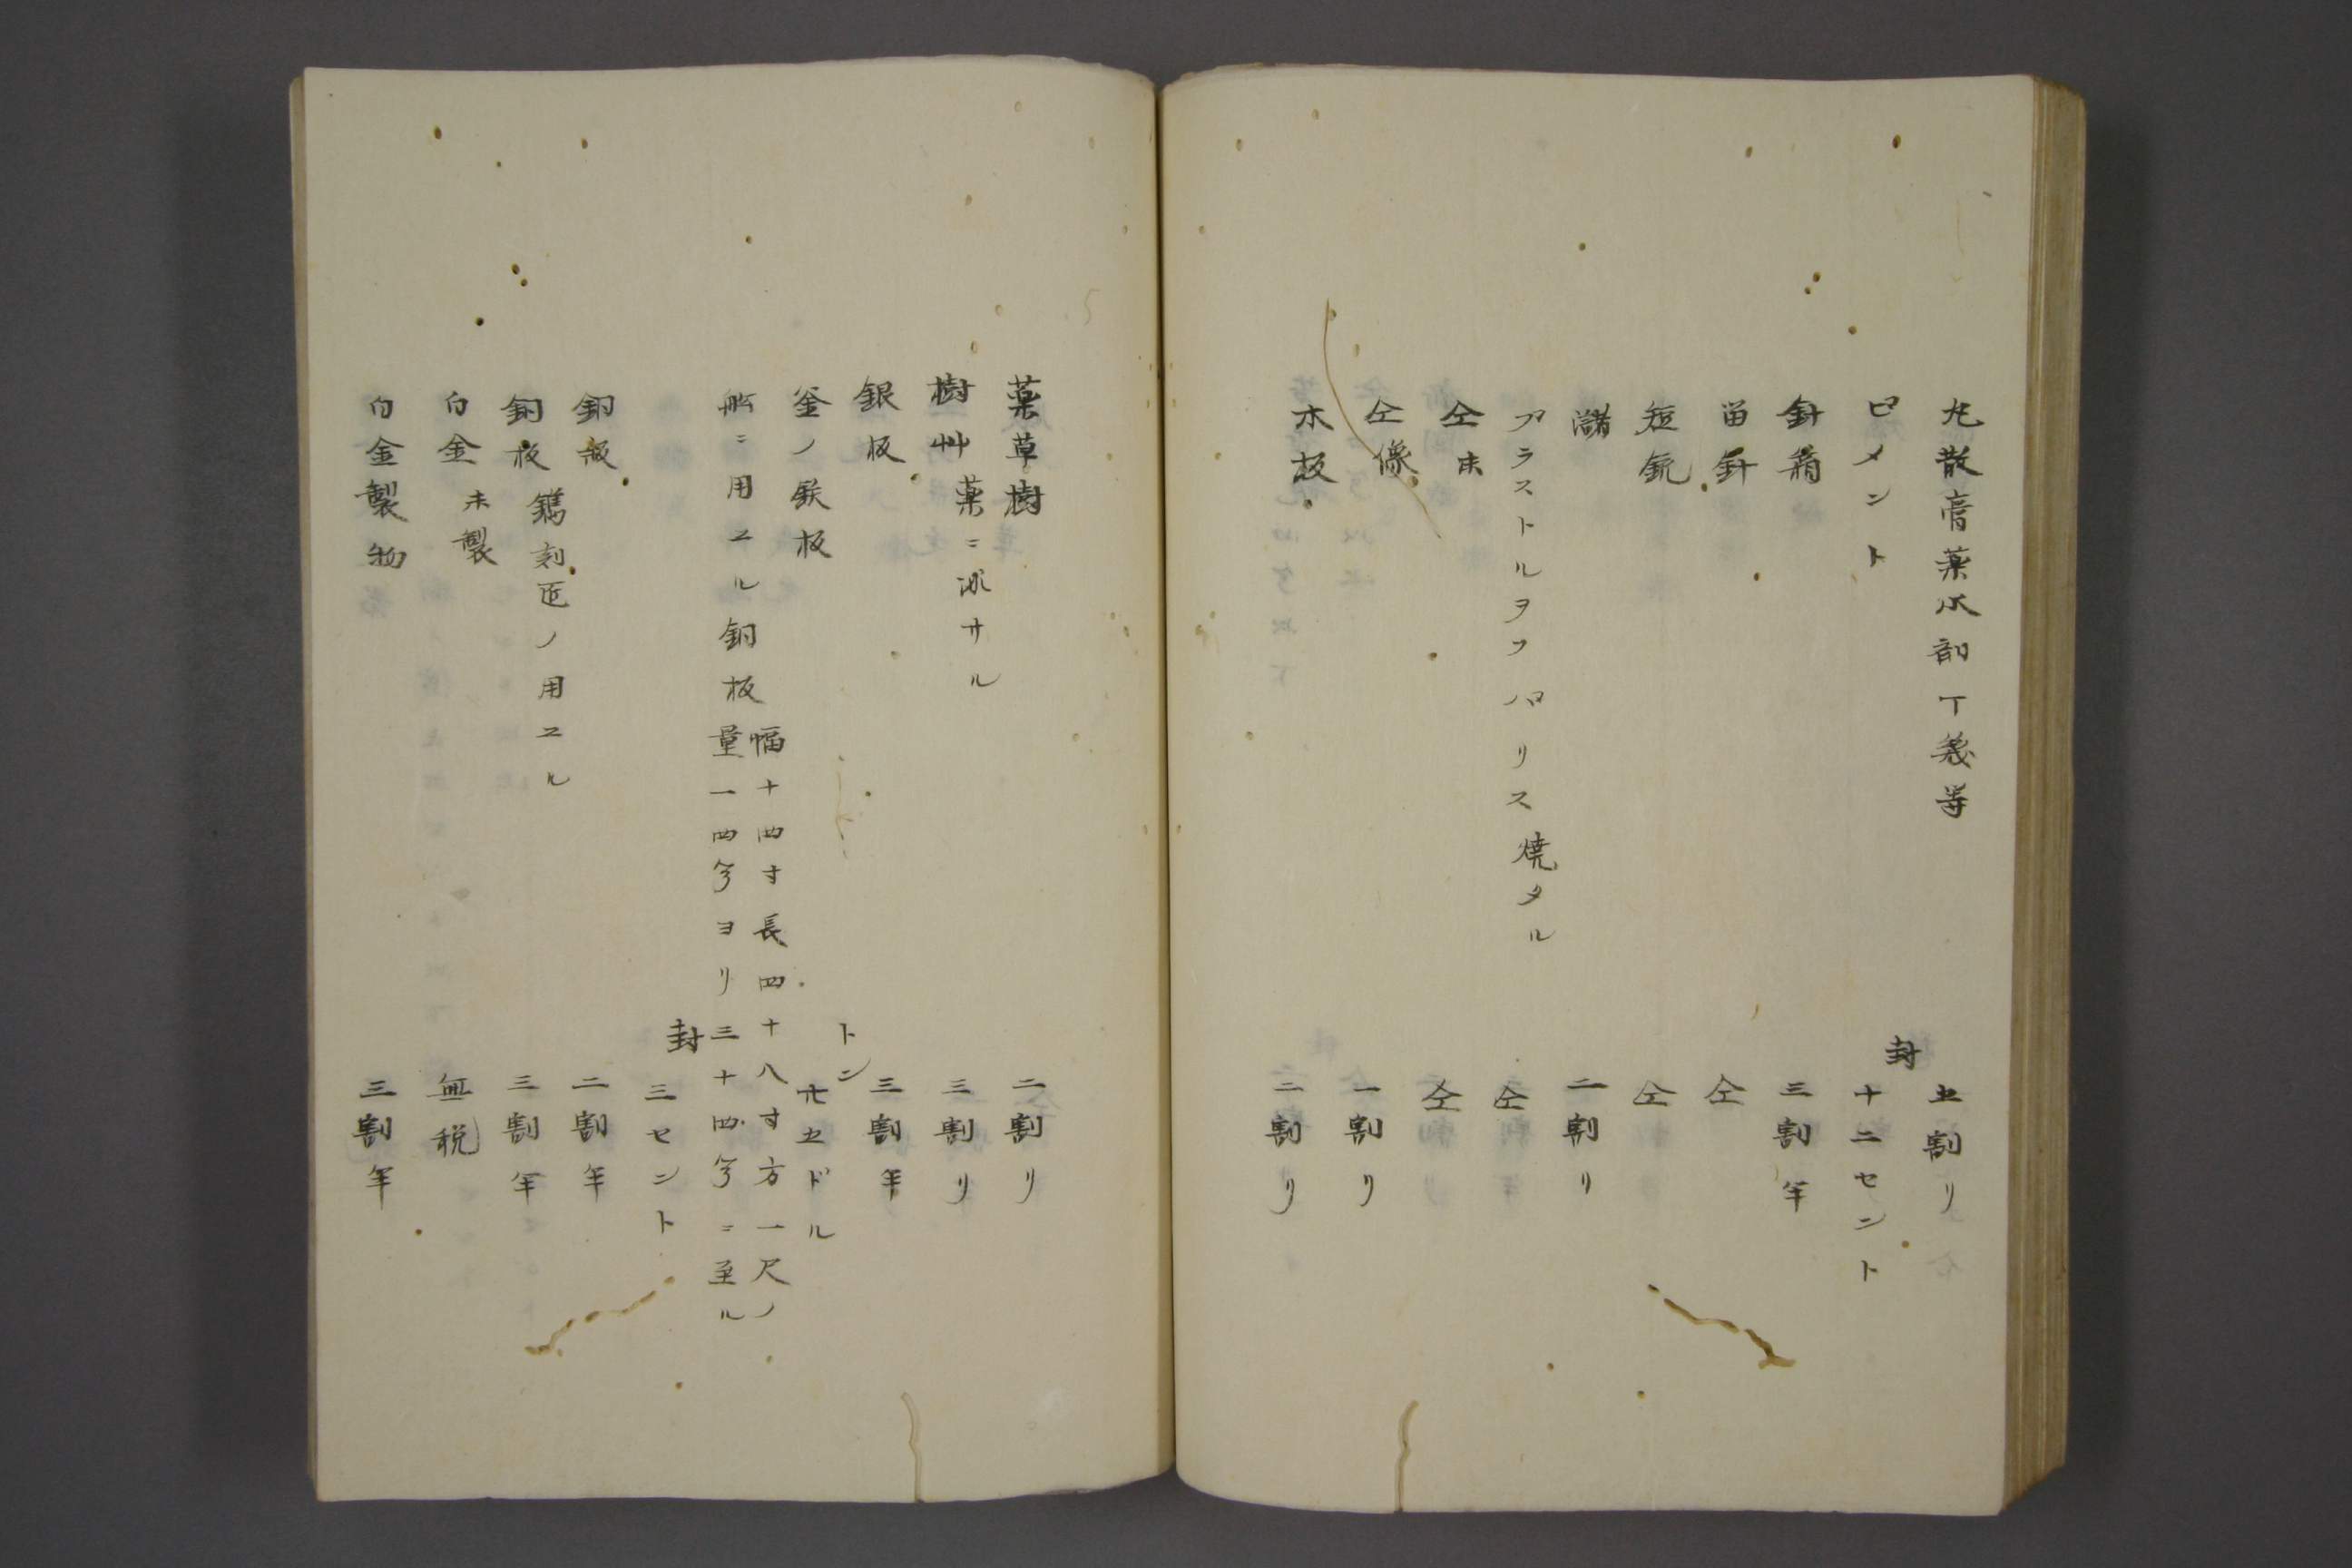 丸散膏薬水剤丁幾等 五割リ
ピメント 封 十二セント
針箱 三割半
留針 仝
短銃 仝
瀦 二割リ
プラストルヲフパリス焼タル 仝
仝末 仝
仝像 一割リ
木板 二割リ
薬草樹 二割リ
樹艸薬ニ非サル 三割リ
銀板 三割半
釜ノ鉄板 トン 廿五ドル
舩ニ用ユル銅板 幅十四寸長四十八寸方一尺ノ
量一四ヨリ三十四ニ至ル
封 三セント
銅板 二割半
銅板鐫刻匠ノ用ユル 三割半
白金未製 無税
白金製物 三割半